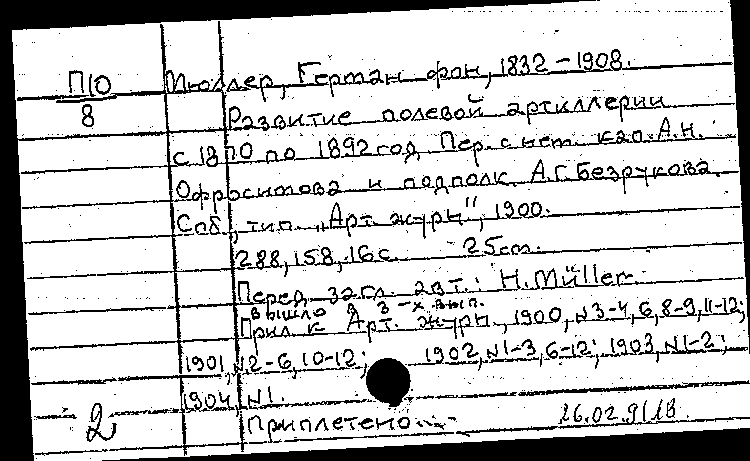 П10 Мюллер, Герман фон, 1832-1908.
8 Развитие полевой артиллерии
с 1870 по 1892 год Пер. с нем. кап. А.Н.
Офросимова и подполк. А.Г. Безрукова.
Спб, тип. "Арт. журн", 1900.
288, 158, 16 с. 25 cm.
Перед загл. авт.: H. Müller.
вышло в 3-х вып.
Прил. к Арт. журн., 1900, №3-4, 6, 8-9, 11-12;
1901, №2-6, 10-12; 1902, №1-3, 6-12; 1903, №1-2;
1904, №1.
2 Приплетено...
26.02.91